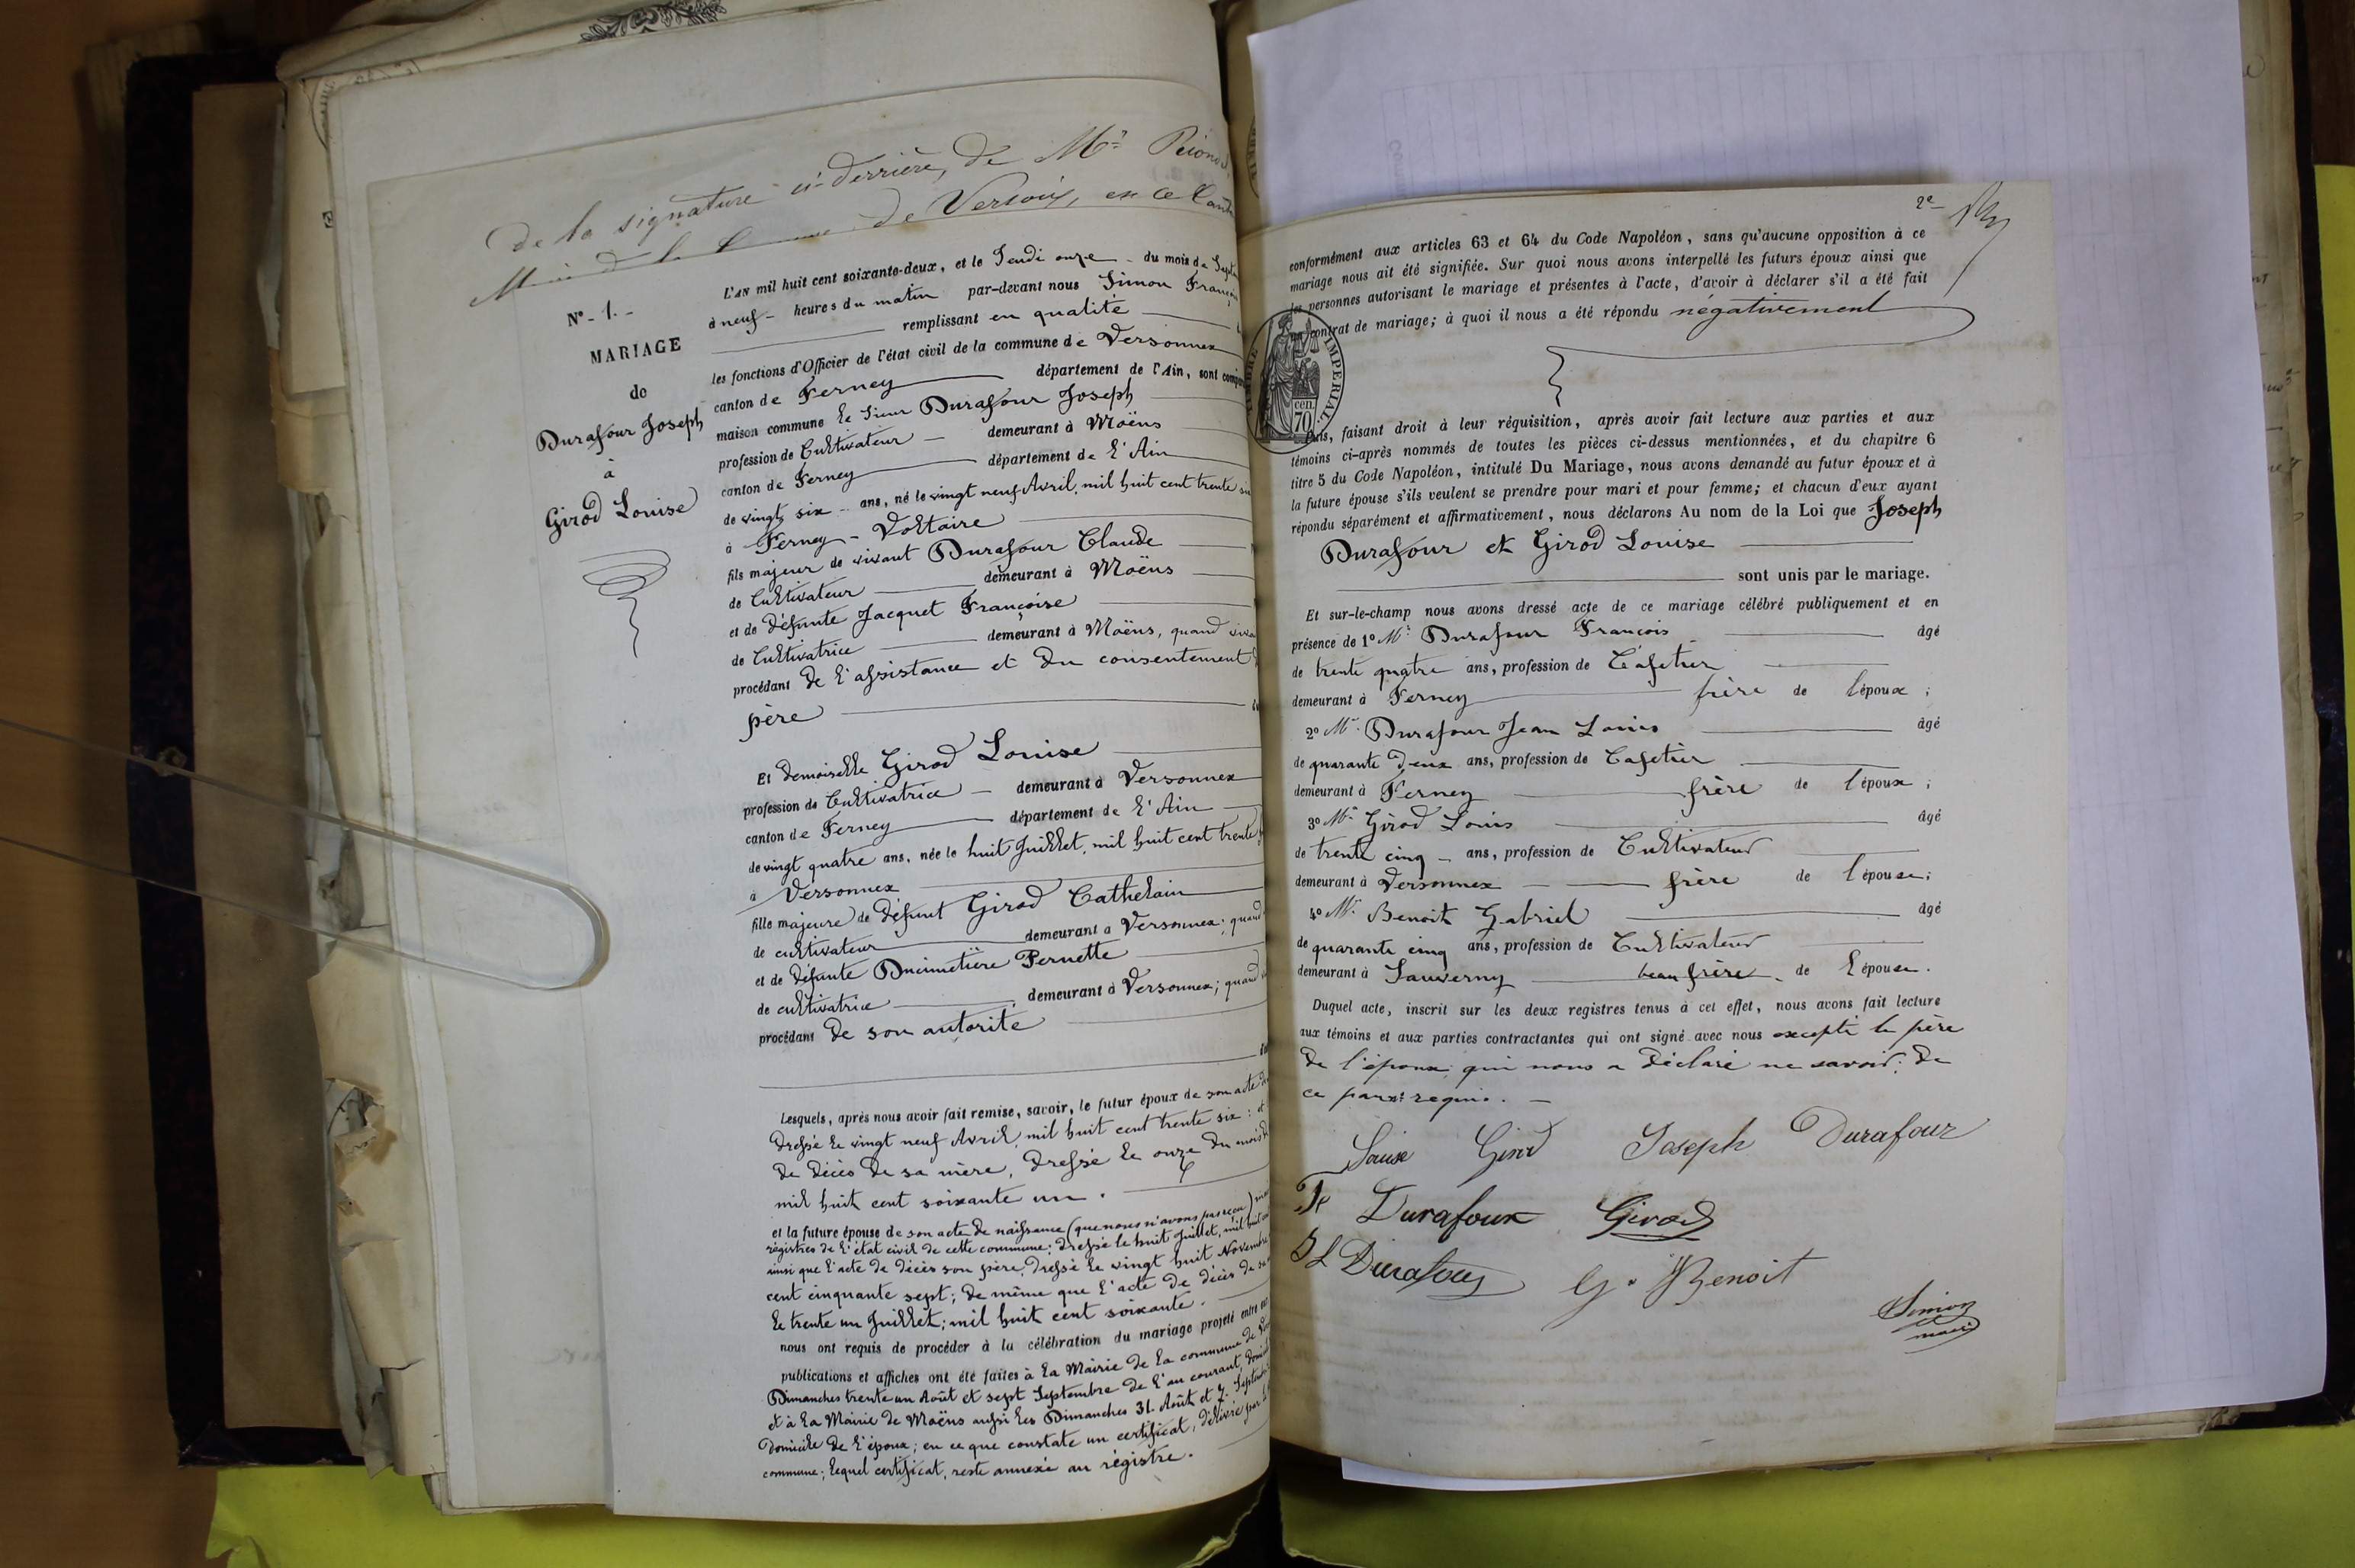 de la signature ci-derrière, de Mr
de Versoix, en ce
N° 1.
MARIAGE
de
Durafour Joseph
à
Girod Louise
L'AN mil huit cent soixante-deux, et le Jeudi onze du mois de
à neuf heures du matin par-devant nous Simon
remplissant en qualité
les fonctions d'Officier de l'état civil de la commune de Versonnex
canton de Ferney département de l'Ain, sont
maison commune le sieur Durafour Joseph
profession de Cultivateur demeurant à Moëns
canton de Ferney département de l'Ain
de vingt six ans, né le vingt neuf Avril, mil huit cent trente
à Ferney-Voltaire
fils majeur de vivant Durafour Claude
de Cultivateur demeurant à Moëns
et de défunte Jacquet Françoise
de Cultivatrice demeurant à Moëns, quand
procédant de l'assistance et du consentement
père
Et demoiselle Girod Louise
profession de Cultivatrice demeurant à Versonnex
canton de Ferney département de l'Ain
de vingt quatre ans, née le huit Juillet, mil huit cent trente
à Versonnex
fille majeure de défunt Girod Cathelain
de cultivateur demeurant à Versonnex; quand
et de défunte Ducimetière Pernette
de cultivatrice demeurant à Versonnex; quand
procédant de son autorité
Lesquels, après nous avoir fait remise, savoir, le futur époux de son acte
dressé le vingt neuf Avril, mil huit cent trente six: et
de décès de sa mère, dressé le onze du mois
mil huit cent soixante un.
et la future épouse de son acte de naissance (que nous n'avons pas reçu)
régistres de l'état civil de cette commune; dressé le huit Juillet, mil huit
ainsi que l'acte de décès son père, dressé le vingt huit Novembre
cent cinquante sept; de même que l'acte de décès de
le trente un Juillet; mil huit cent soixante.
nous ont requis de procéder à la célébration du mariage projeté entre
publications et affiches ont été faites à la Mairie de la commune de
Dimanches trente un Août et sept Septembre de l'an courant,
et à la Mairie de Moëns aussi les Dimanches 31 Août et 7
domicile de l'époux; en ce que constate un certificat, délivré par
commune; lequel certificat, reste annexé au régistre.
2e
conformément aux articles 63 et 64 du Code Napoléon, sans qu'aucune opposition à ce
mariage nous ait été signifiée. Sur quoi nous avons interpellé les futurs époux ainsi que
les personnes autorisant le mariage et présentes à l'acte, d'avoir à déclarer s'il a été fait
contrat de mariage; à quoi il nous a été répondu négativement
TIMBRE IMPERIAL.
cen.
70
faisant droit à leur réquisition, après avoir fait lecture aux parties et aux
témoins ci-après nommés de toutes les pièces ci-dessus mentionnées, et du chapitre 6
titre 5 du Code Napoléon, intitulé Du Mariage, nous avons demandé au futur époux et à
la future épouse s'ils veulent se prendre pour mari et pour femme; et chacun d'eux ayant
répondu séparément et affirmativement, nous déclarons Au nom de la Loi que Joseph
Durafour et Girod Louise
sont unis par le mariage.
Et sur-le-champ nous avons dressé acte de ce mariage célébré publiquement et en
présence de 1° Mr Durafour François âgé
de trente quatre ans, profession de Cafetier
demeurant à Ferney frère de l'époux;
2° Mr Durafour Jean Louis âgé
de quarante deux ans, profession de Cafetier
demeurant à Ferney frère de l'époux;
3° Mr Girod Louis âgé
de trente cinq ans, profession de Cultivateur
demeurant à Versonnex frère de l'épouse;
4° Mr Benoit Gabriel âgé
de quarante cinq ans, profession de Cultivateur
demeurant à Sauverny beau frère de l'épouse.
Duquel acte, inscrit sur les deux registres tenus à cet effet, nous avons fait lecture
aux témoins et aux parties contractantes qui ont signé avec nous excepté le père
de l'époux qui nous a déclaré ne savoir; de
ce requis.
Louise Girod Joseph Durafour
Durafour Girod
Durafour G. Benoit
Simon
maire